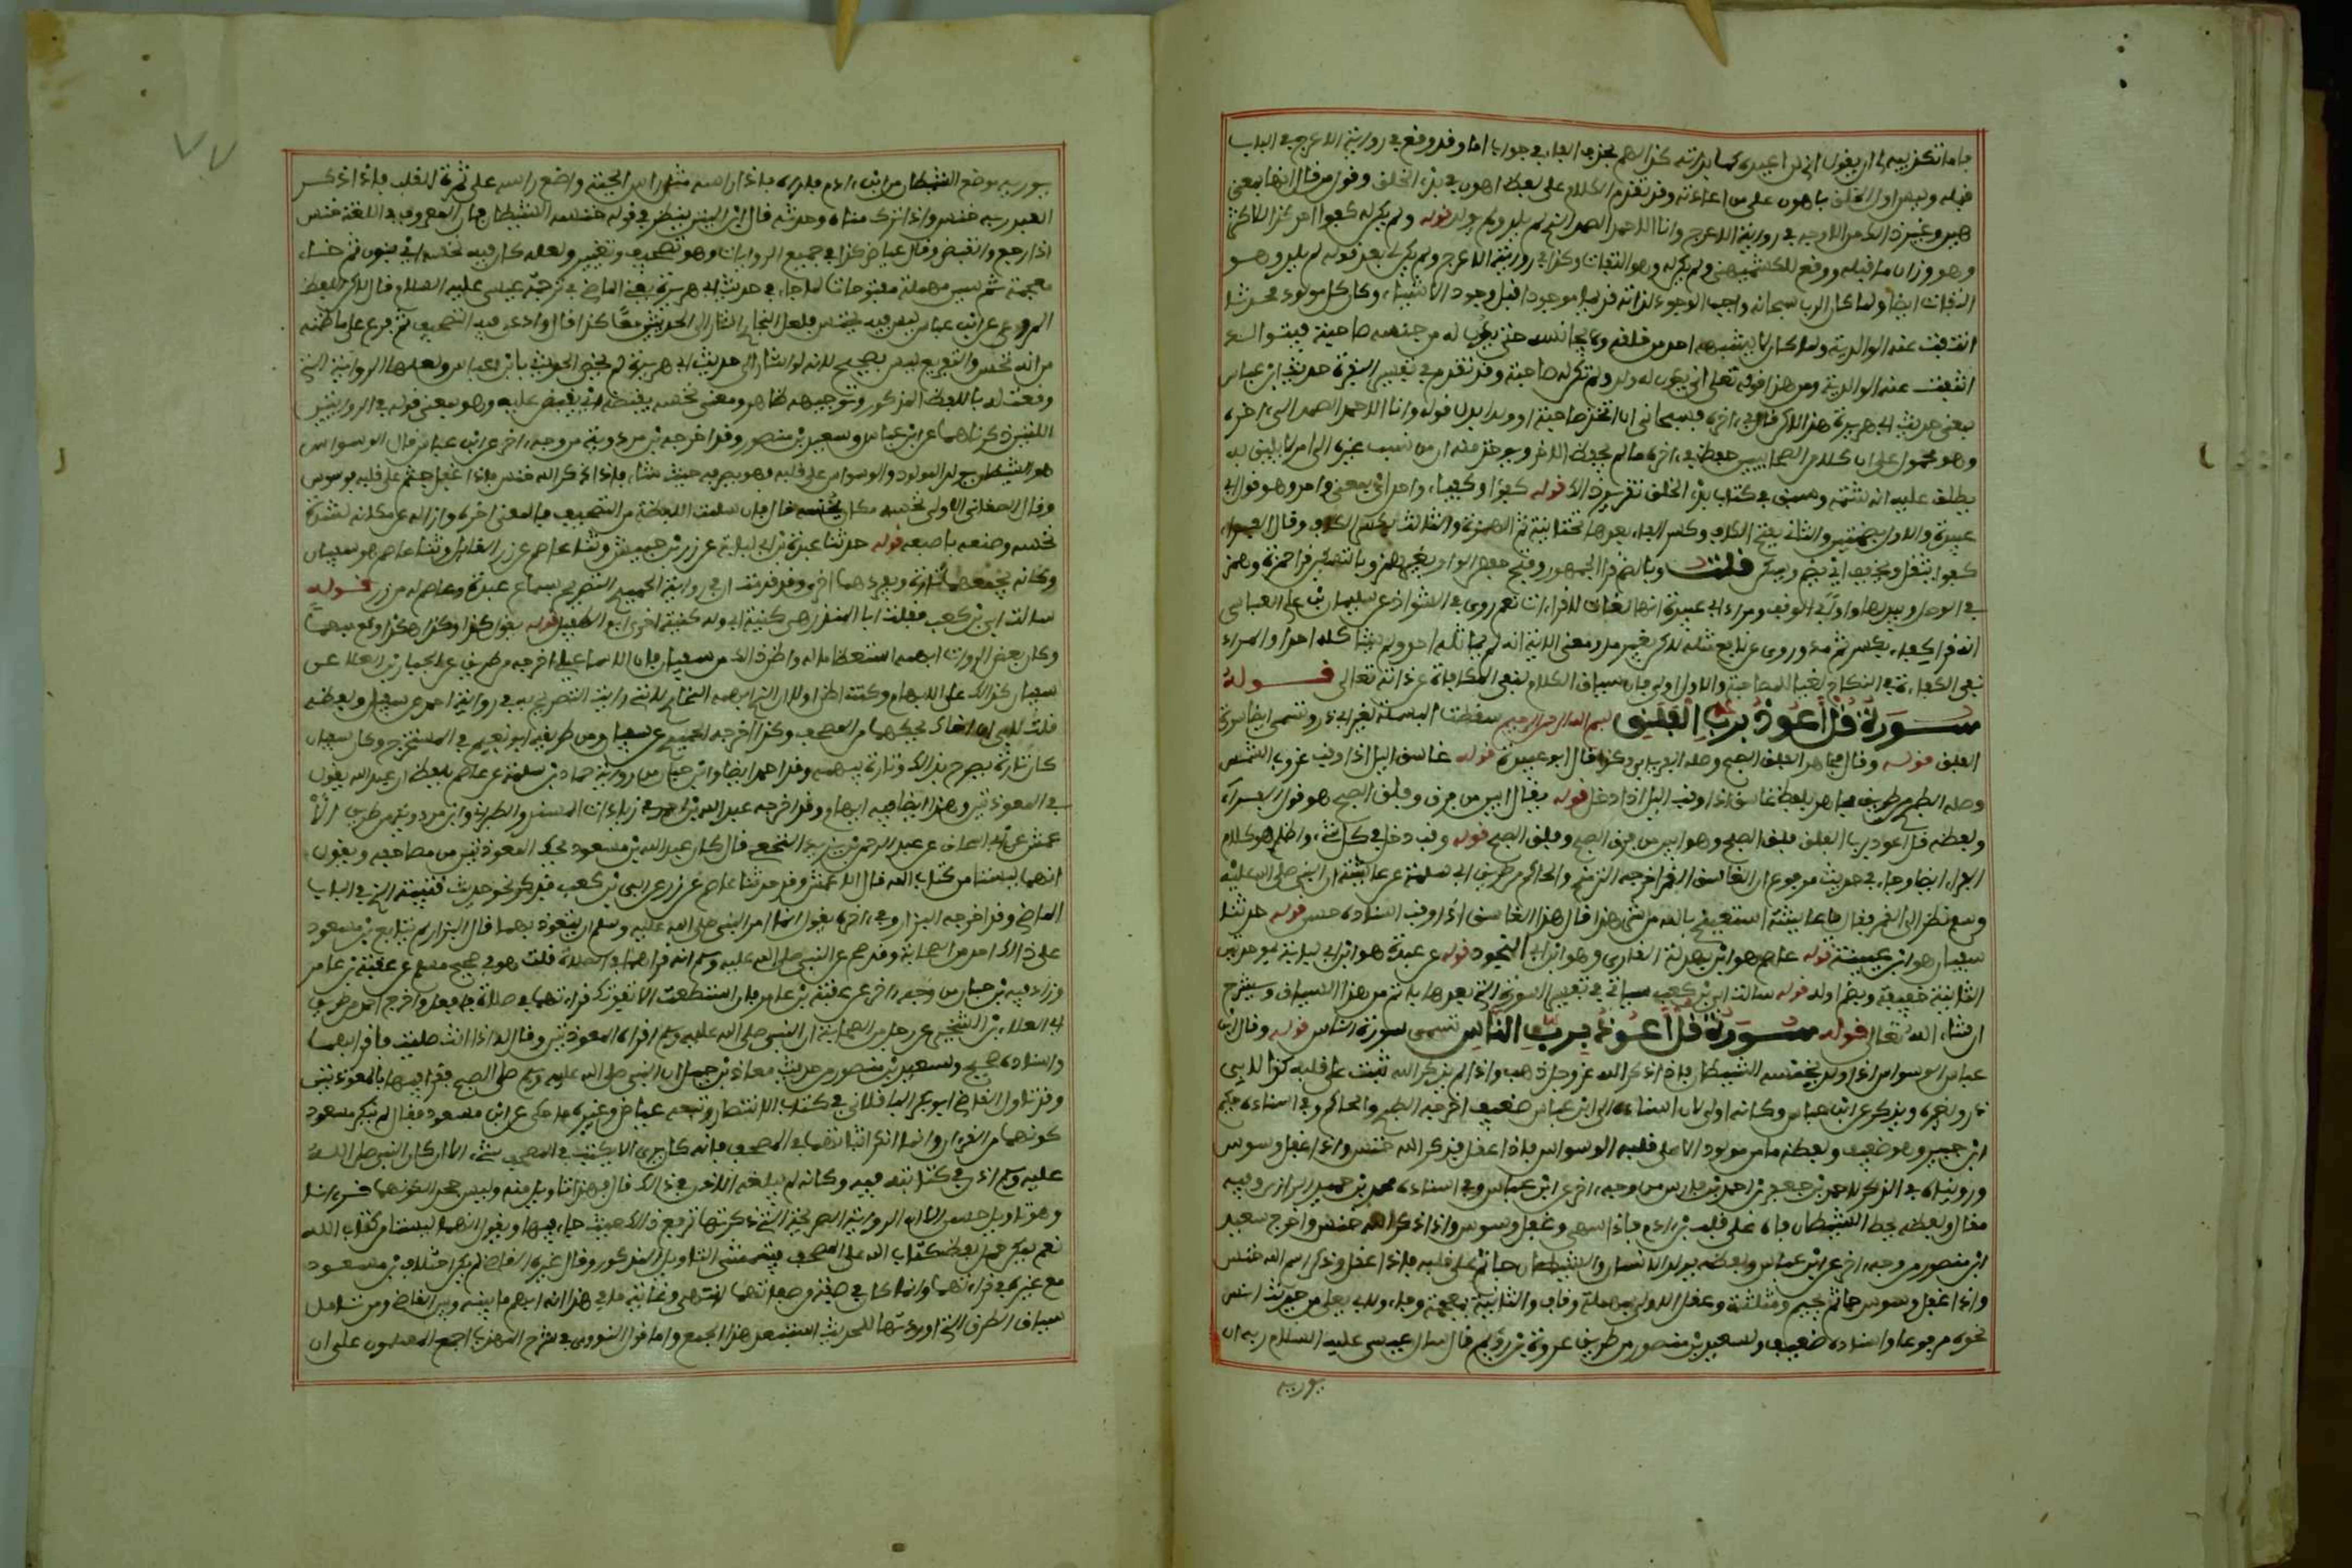 فاما تكذيبه اياي ان يقول اني لن اعيده كما بدأته كذا لهم بحذف الفاء في جواب اما وقد وقع في رواية الاعرج في الباب
قبله وليس اول الخلق باهون علي من اعادته وقد تقدم الكلام على لفظ اهون في بدء الخلق وقول من قال انها بمعنى
هين وغير ذلك من الاوجه في رواية الاعرج وانا الاحد الصمد الذي لم يلد ولم يولد قوله ولم يكن له كفوا احد كذا للاكثر
وهو وزان ما قبله ووقع للكشميهني ولم يكن له وهو التفات وكذا في رواية الاعرج ولم يكن لي بعد قوله لم يلد وهو
التفات ايضا ولما كان الرب سبحانه واجب الوجود لذاته قديما موجودا قبل وجود الاشياء وكان كل مولود محدثا
انتفت عنه الوالدية ولما كان لا يشبهه احد من خلقه ولا يجانسه حتى يكون له من جنسه صاحبة فيتوالد
انتفت عنه الوالدية ومن هذا قوله تعالى انى يكون له ولد ولم تكن له صاحبة وقد تقدم في تفسير البقرة حديث ابن عباس
بمعنى حديث ابي هريرة هذا لكن قال في اخره فسبحاني ان اتخذ صاحبة او ولدا بدل قوله وانا الاحد الصمد الى اخره
وهو محمول على ان كلا من الصحابيين حفظ في اخره ما لم يحفظ الاخر ويوخذ منه ان من نسب غيره الى امر لا يليق به
يطلق عليه انه شتمه وسبق في كتاب بدء الخلق تقرير ذلك قوله كفؤا وكفيئا وكفاء واحد اي بمعنى واحد وهو قول ابي
عبيدة والاول بضمتين والثاني بفتح الكاف وكسر الفاء بعدها تحتانية ثم الهمزة والثالث بكسر الكاف وقال الفراء
كفوا يثقل ويخفف اي يضم ويسكن قلت وبالضم قرا الجمهور وفتح حفص الواو بغير همز وبالتسكين قرا حمزة وبهمز
في الوصل ويبدلها واوا في الوقف ومراد ابي عبيدة انها لغات لا قراءات نعم روى في الشواذ عن سليمان بن علي العباسي
انه قرا بكسر ثم مد وروى عن نافع مثله لكن بغير مد ومعنى الاية انه لم يماثله احد ولم يشاكله احد او المراد
نفي الكفاءة في النكاح نفيا للصاحبة والاول اولى فان سياق الكلام لنفي المكافاة عن ذاته تعالى قوله
سورة قل أعوذ برب الفلق بسم الله الرحمن الرحيم سقطت البسملة لغير ابي ذر وتسمى ايضا سورة
الفلق قوله وقال مجاهد الفلق الصبح وصله الفريابي وكذا قال ابو عبيدة قوله غاسق الليل اذا وقب غروب الشمس
وصله الطبري من طريق مجاهد بلفظ غاسق اذا وقب الليل اذا دخل قوله يقال ابين من فرق وفلق الصبح هو قول الفراء
ولفظه قل اعوذ برب الفلق فلق الصبح وهو ابين من فرق الصبح وفلق الصبح قوله وقب دخل في كل شيء واظلم هو كلام
الفراء ايضا وجاء في حديث مرفوع ان الغاسق القمر اخرجه الترمذي والحاكم من طريق ابي سلمة عن عائشة ان النبي صلى الله عليه
وسلم نظر الى القمر فقال يا عائشة استعيذي بالله من شر هذا قال هذا الغاسق اذا وقب اسناده حسن قوله حدثنا
سفيان هو ابن عيينة قوله عاصم هو ابن بهدلة القاري وهو ابن ابي النجود قوله عن عبدة هو ابن ابي لبابة بموحدتين
الثانية خفيفة وبضم اوله قوله سالت ابي بن كعب سياتي في تفسير السورة التي بعدها باتم من هذا السياق ويشرح
ان شاء الله تعالى قوله سورة قل أعوذ برب الناس تسمى سورة الناس قوله وقال ابن
عباس الوسواس اذا ولد خنسه الشيطان فاذا ذكر الله عز وجل ذهب واذا لم يذكر الله ثبت على قلبه كذا لابي
ذر ولغيره ويذكر عن ابن عباس وكانه اولى لان اسناده الى ابن عباس ضعيف اخرجه الطبري والحاكم وفي اسناده حكيم
ابن جبير وهو ضعيف ولفظه ما من مولود الا على قلبه الوسواس فاذا عقل فذكر الله خنس واذا غفل وسوس
ورويناه في الذكر لجعفر بن احمد بن فارس من وجه اخر عن ابن عباس وفي اسناده محمد بن حميد الرازي وفيه
مقال ولفظه يحط الشيطان فاه على قلب ابن ادم فاذا سهى وغفل وسوس واذا ذكر الله خنس واخرج سعيد
ابن منصور من وجه اخر عن ابن عباس ولفظه يولد الانسان والشيطان جاثم على قلبه فاذا عقل وذكر اسم الله خنس
واذا غفل وسوس جاثم بجيم ومثلثة وعقل الاولى بمهملة وقاف والثانية بمعجمة وفاء ولابي يعلى من حديث انس
نحوه مرفوعا واسناده ضعيف ولسعيد بن منصور من طريق عروة بن رويم قال سال عيسى عليه السلام ربه ان
يوريه
يوريه موضع الشيطان من ابن ادم فاراه فاذا راسه مثل راس الحية واضع راسه على ثمرة القلب فاذا ذكر
العبد ربه خنس واذا ترك مناه وحدثه قال ابن التين ينظر في قوله خنسه الشيطان فان المعروف في اللغة خنس
اذا رجع وانقبض وقال عياض كذا في جميع الروايات وهو تصحيف وتغيير ولعله كان فيه نخسه اي بنون ثم خاء
معجمة ثم سين مهملة مفتوحات لما جاء في حديث ابي هريرة يعني الماضي في ترجمة عيسى عليه السلام قال لكن اللفظ
المروي عن ابن عباس ليس فيه نخس فلعل البخاري اشار الى الحديثين معا كذا قال وادعى فيه التصحيف ثم فرع على ما ظنه
من انه نخس والتفريع ليس بصحيح لانه لو اشار الى حديث ابي هريرة لم يخص الحديث بابن عباس ولعلها الرواية التي
وقعت له باللفظ المذكور وتوجيهه ظاهر ومعنى نخسه يقبضه اي يقبض عليه وهو بمعنى قوله في الروايتين
اللتين ذكرناهما عن ابن عباس وسعيد بن منصور وقد اخرجه ابن مردويه من وجه اخر عن ابن عباس قال الوسواس
هو الشيطان يولد المولود والوسواس على قلبه فهو يصرفه حيث شاء فاذا ذكر الله خنس واذا غفل جثم على قلبه فوسوس
وقال الصغاني الاولى نخسه مكان خنسه قال فان سلمت اللفظة من التصحيف فالمعنى اخره وازاله عن مكانه لشدة
نخسه وطعنه باصبعه قوله حدثنا عبدة بن ابي لبابة عن زر بن حبيش وثنا عاصم عن زر القائل وثنا عاصم هو سفيان
وكانه يجمعهما تارة ويفردهما اخرى وقد قدمت ان في رواية الحميدي التصريح بسماع عبدة وعاصم له من زر قوله
سالت ابي بن كعب فقلت ابا المنذر هي كنية ابي وله كنية اخرى ابو الطفيل قوله يقول كذا وكذا هكذا وقع مبهما
وكان بعض الرواة ابهمه استعظاما له واظن ذلك من سفيان فان الاسماعيلي اخرجه من طريق عبد الجبار بن العلاء عن
سفيان كذلك على الابهام وكنت اظن اولا ان الذي ابهمه البخاري لانني رايت التصريح به في رواية احمد عن سفيان ولفظه
قلت لابي ان اخاك يحكهما من المصحف وكذا اخرجه الحميدي عن سفيان ومن طريقه ابو نعيم في المستخرج وكان سفيان
كان تارة يصرح بذلك وتارة يبهمه وقد اخرجه احمد ايضا وابن حبان من رواية حماد بن سلمة عن عاصم بلفظ ان عبد الله يقول
في المعوذتين وهذا ايضا فيه ابهام وقد اخرجه عبد الله بن احمد في زيادات المسند والطبراني وابن مردويه من طريق الا
عمش عن ابي اسحاق عن عبد الرحمن بن يزيد النخعي قال كان عبد الله بن مسعود يحك المعوذتين من مصاحفه ويقول
انهما ليستا من كتاب الله قال الاعمش وقد حدثنا عاصم عن زر عن ابي بن كعب فذكر نحو حديث قتيبة الذي في الباب
الماضي وقد اخرجه البزار وفي اخره يقول انما امر النبي صلى الله عليه وسلم ان يتعوذ بهما قال البزار لم يتابع ابن مسعود
على ذلك احد من الصحابة وقد صح عن النبي صلى الله عليه وسلم انه قراهما في الصلاة قلت هو في صحيح مسلم عن عقبة بن عامر
وزاد فيه ابن حبان من وجه اخر عن عقبة بن عامر فان استطعت ان لا تفوتك قراءتهما في صلاة فافعل واخرج احمد من طريق
ابي العلاء بن الشخير عن رجل من الصحابة ان النبي صلى الله عليه وسلم اقراه المعوذتين وقال له اذا انت صليت فاقرا بهما
واسناده صحيح ولسعيد بن منصور من حديث معاذ بن جبل ان النبي صلى الله عليه وسلم صلى الصبح فقرا فيها بالمعوذتين
وقد تاول القاضي ابو بكر الباقلاني في كتاب الانتصار وتبعه عياض وغيره ما حكي عن ابن مسعود فقال لم ينكر ابن مسعود
كونهما من القران وانما انكر اثباتهما في المصحف فانه كان يرى ان لا يكتب في المصحف شيء الا ان كان النبي صلى الله
عليه وسلم اذن في كتابته فيه وكانه لم يبلغه الاذن في ذلك قال فهذا تاويل منه وليس جحدا لكونهما قرءانا
وهو تاويل حسن الا ان الرواية الصريحة التي ذكرتها تدفع ذلك حيث جاء فيها ويقول انهما ليستا من كتاب الله
نعم يمكن حمل لفظ كتاب الله على المصحف فيتمشى التاويل المذكور وقال غير القاضي لم يكن اختلاف ابن مسعود
مع غيره في قراءتهما وانما كان في صفة من صفاتهما انتهى وغاية ما في هذا انه ابهم ما بينه القاضي ومن تامل
سياق الطرق التي اوردتها للحديث استبعد هذا الجمع واما قول النووي في شرح المهذب اجمع المسلمون على ان